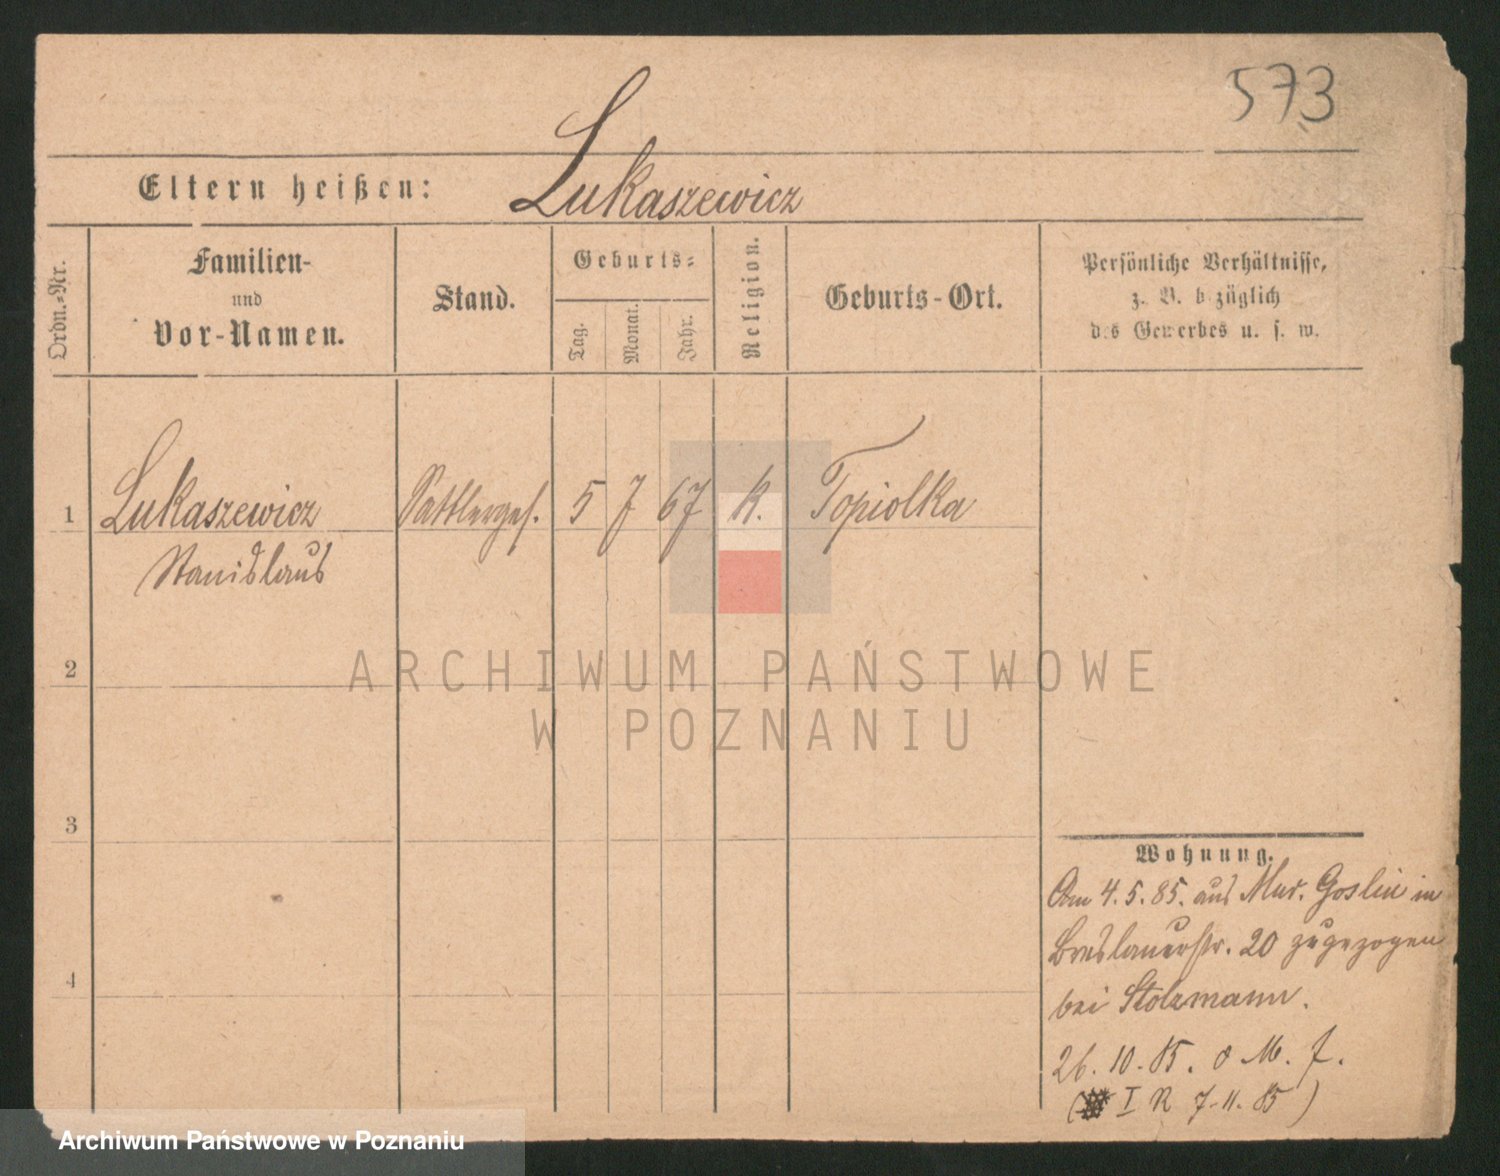 573
Eltern heißen: Lukaszewicz
Ordn.-Nr.
Familien-
und
Vor-Namen.
Stand.
Geburts-
Tag.
Monat.
Jahr.
Religion.
Geburts-Ort.
Persönliche Verhältnisse,
z. B. bezüglich
des Gewerbes u. s. w.
1 Lukaszewicz Sattlerges. 5 7 67 K. Topiolka
Stanislaus
2
ARCHIWUM PAŃSTWOWE
W POZNANIU
3
Wohnung.
Am 4.5.85. aus Mur. Goslin in
Breslauerstr. 20 zugezogen
bei Stolzmann.
4
26.10.85. M. J.
( I R 7-11.85)
Archiwum Państwowe w Poznaniu